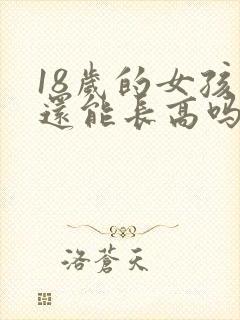 18歲的女孩
還能長高吗
洛蒼天